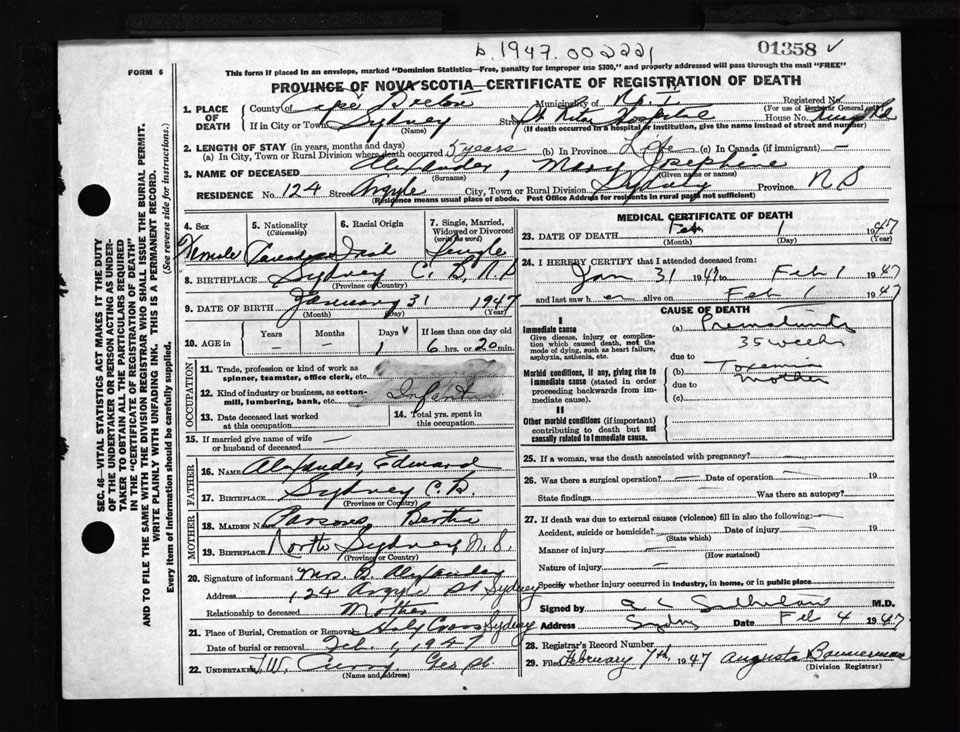 b. 1947.002221
01358 ✓
FORM 6
This form if placed in an envelope, marked "Dominion Statistics—Free, penalty for improper use $300," and properly addressed will pass through the mail "FREE"
PROVINCE OF NOVA SCOTIA—CERTIFICATE OF REGISTRATION OF DEATH
1. PLACE OF DEATH
County of Cape Breton Municipality of Registered No.
(For use of Registrar General only)
If in City or Town Sydney Street St. Rita Hospital House No. Kings Rd
(Name) (If death occurred in a hospital or institution, give the name instead of street and number)
2. LENGTH OF STAY (in years, months and days)
(a) In City, Town or Rural Division where death occurred 5 years (b) In Province Life (c) In Canada (if immigrant) —
3. NAME OF DECEASED Alexander, Mary Josephine
(Surname) (Given name or names)
RESIDENCE No. 124 Street Argyle City, Town or Rural Division Sydney Province N S
(Residence means usual place of abode. Post Office Address for residents in rural parts not sufficient)
4. Sex Female
5. Nationality (Citizenship) Canadian
6. Racial Origin Irish
7. Single, Married, Widowed or Divorced (write the word) Single
8. BIRTHPLACE Sydney C. B. N S
(Province or County)
9. DATE OF BIRTH January 31 1947
(Month) (Day) (Year)
10. AGE in Years — Months — Days 1 If less than one day old 6 hrs. or 20 min.
OCCUPATION
11. Trade, profession or kind of work as spinner, teamster, office clerk, etc.
12. Kind of industry or business, as cotton-mill, lumbering, bank, etc. Infant
13. Date deceased last worked at this occupation
14. Total yrs. spent in this occupation
15. If married give name of wife or husband of deceased —
FATHER
16. NAME Alexander, Edward
17. BIRTHPLACE Sydney C. B.
(Province or Country)
MOTHER
18. MAIDEN NAME Parsons Bertie
19. BIRTHPLACE North Sydney N. S.
(Province or Country)
20. Signature of informant Mrs. B. Alexander
Address 124 Argyle St Sydney
Relationship to deceased Mother
21. Place of Burial, Cremation or Removal Holy Cross Sydney
Date of burial or removal Feb. 1, 1947
22. UNDERTAKER T.W. Curry, Geo St.
(Name and address)
MEDICAL CERTIFICATE OF DEATH
23. DATE OF DEATH Feb 1 1947
(Month) (Day) (Year)
24. I HEREBY CERTIFY that I attended deceased from:
Jan 31 1947 to Feb 1 1947
and last saw h er alive on Feb 1 1947
CAUSE OF DEATH
I
Immediate cause
Give disease, injury or complication which caused death, not the mode of dying, such as heart failure, asphyxia, asthenia, etc.
(a) Prematurity
35 weeks
due to
Morbid conditions, if any, giving rise to immediate cause (stated in order proceeding backwards from immediate cause).
(b) Toxemia
mother
due to
(c)
II
Other morbid conditions (if important) contributing to death but not causally related to immediate cause.
25. If a woman, was the death associated with pregnancy? —
26. Was there a surgical operation? — Date of operation — 19
State findings Was there an autopsy?
27. If death was due to external causes (violence) fill in also the following: —
Accident, suicide or homicide? Date of injury — 19
(State which)
Manner of injury —
(How sustained)
Nature of injury —
Specify whether injury occurred in industry, in home, or in public place
Signed by M.D.
Address Sydney Date Feb 4 1947
28. Registrar's Record Number
29. Filed February 7th, 1947 Augusta Bannerman
(Division Registrar)
SEC. 46—VITAL STATISTICS ACT MAKES IT THE DUTY
OF THE UNDERTAKER OR PERSON ACTING AS UNDER-
TAKER TO OBTAIN ALL THE PARTICULARS REQUIRED
IN THE "CERTIFICATE OF REGISTRATION OF DEATH"
AND TO FILE THE SAME WITH THE DIVISION REGISTRAR WHO SHALL ISSUE THE BURIAL PERMIT.
WRITE PLAINLY WITH UNFADING INK. THIS IS A PERMANENT RECORD.
Every item of information should be carefully supplied. (See reverse side for instructions.)